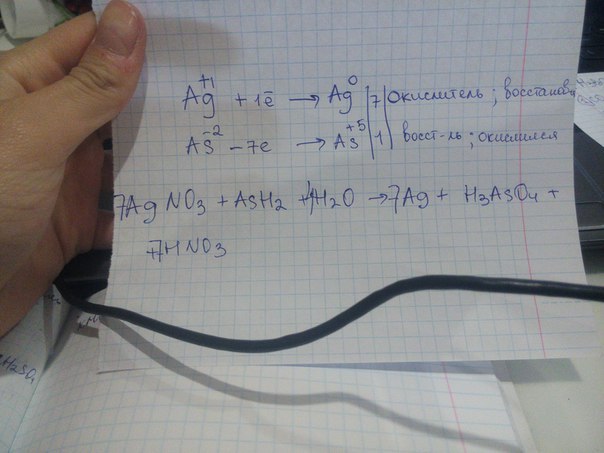 Ag⁺¹ + 1ē → Ag⁰ | 7 | окислитель; восстанов
As⁻² - 7e → As⁺⁵ | 1 | восст-ль; окислился
7AgNO₃ + AsH₂ + 4H₂O → 7Ag + H₃AsO₄ +
+7HNO₃
H₂SO₄